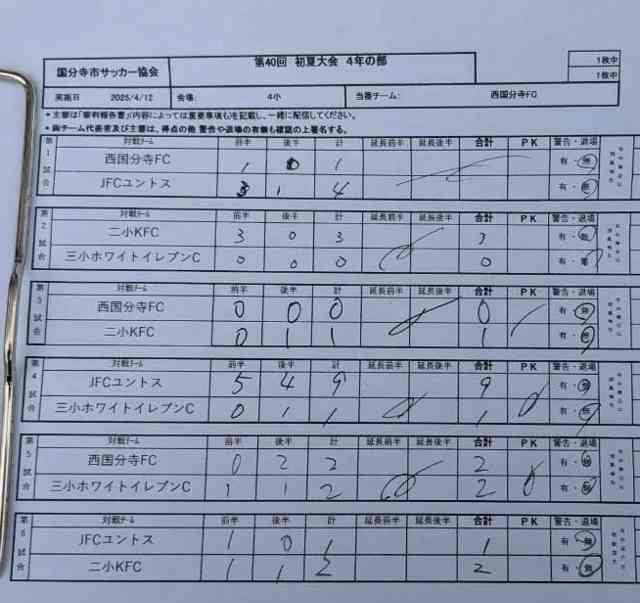 国分寺市サッカー協会 第40回 初夏大会 4年の部 1枚中
1枚中
実施日 2025/4/12 会場: 4小 当番チーム: 西国分寺FC
*主審は「審判報告書」の内容によっては重要事項も記載し、一緒に配信してください。
*両チーム代表者及び主審は、得点の他 警告や退場の有無も確認の上署名する。
第1試合 対戦チーム 前半 後半 計 延長前半 延長後半 合計 PK 警告・退場
西国分寺FC 1 0 1 有・無
JFCユントス 3 1 4 有・無
第2試合 対戦チーム 前半 後半 計 延長前半 延長後半 合計 PK 警告・退場
二小KFC 3 0 3 3 有・無
三小ホワイトイレブンC 0 0 0 0 有・無
第3試合 対戦チーム 前半 後半 計 延長前半 延長後半 合計 PK 警告・退場
西国分寺FC 0 0 0 0 有・無
二小KFC 0 1 1 1 有・無
第4試合 対戦チーム 前半 後半 計 延長前半 延長後半 合計 PK 警告・退場
JFCユントス 5 4 9 9 有・無
三小ホワイトイレブンC 0 1 1 1 有・無
第5試合 対戦チーム 前半 後半 計 延長前半 延長後半 合計 PK 警告・退場
西国分寺FC 0 2 2 2 有・無
三小ホワイトイレブンC 1 1 2 2 有・無
第6試合 対戦チーム 前半 後半 計 延長前半 延長後半 合計 PK 警告・退場
JFCユントス 1 0 1 1 有・無
二小KFC 1 1 2 2 有・無